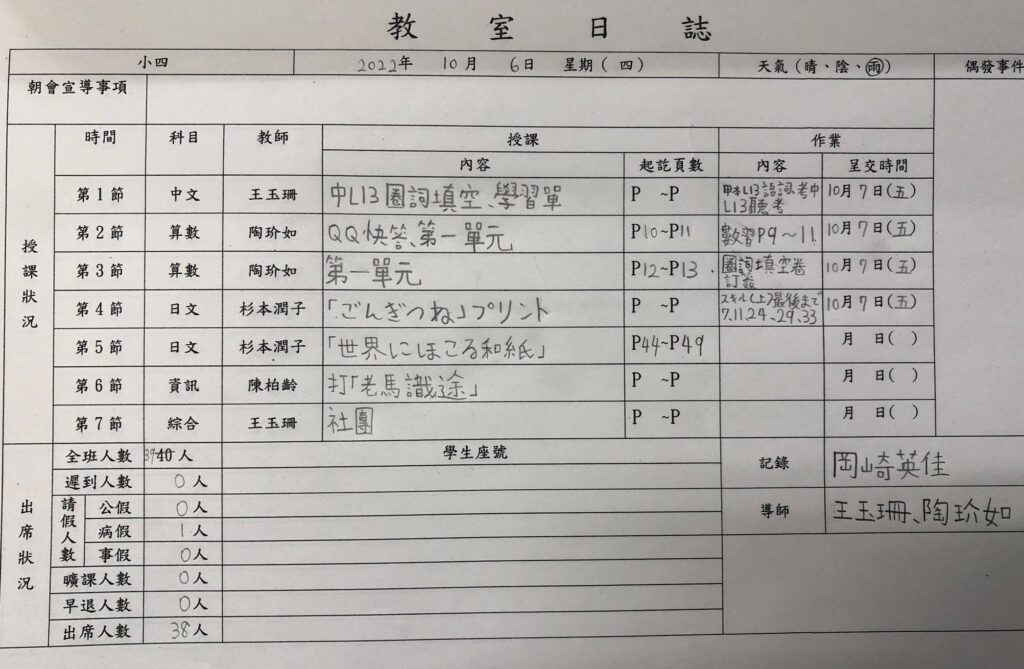 教室日誌
小四 2022年 10月 6日 星期(四) 天氣(晴、陰、雨) 偶發事件
朝會宣導事項
授課狀況 時間 科目 教師 授課 作業
內容 起訖頁數 內容 呈交時間
第1節 中文 王玉珊 中L13圈詞填空、學習單 P ~P 甲本L13語詞考中 10月7日(五)
L13聽考
第2節 算數 陶玠如 QQ快答、第一單元 P10~P11 數習P9~11 10月7日(五)
第3節 算數 陶玠如 第一單元 P12~P13 圈詞填空卷 10月7日(五)
第4節 日文 杉本潤子 「ごんぎつね」プリント P ~P スキル(上)最後まで 10月7日(五)
7、11、24、29、33
第5節 日文 杉本潤子 「世界にほこる和紙」 P44~P49 月 日( )
第6節 資訊 陳柏齡 打「老馬識途」 P ~P 月 日( )
第7節 綜合 王玉珊 社團 P ~P 月 日( )
出席狀況 全班人數 39 40人 學生座號 記錄 岡崎英佳
遲到人數 0人
請假人數 公假 0人 導師 王玉珊、陶玠如
病假 1人
事假 0人
曠課人數 0人
早退人數 0人
出席人數 38人